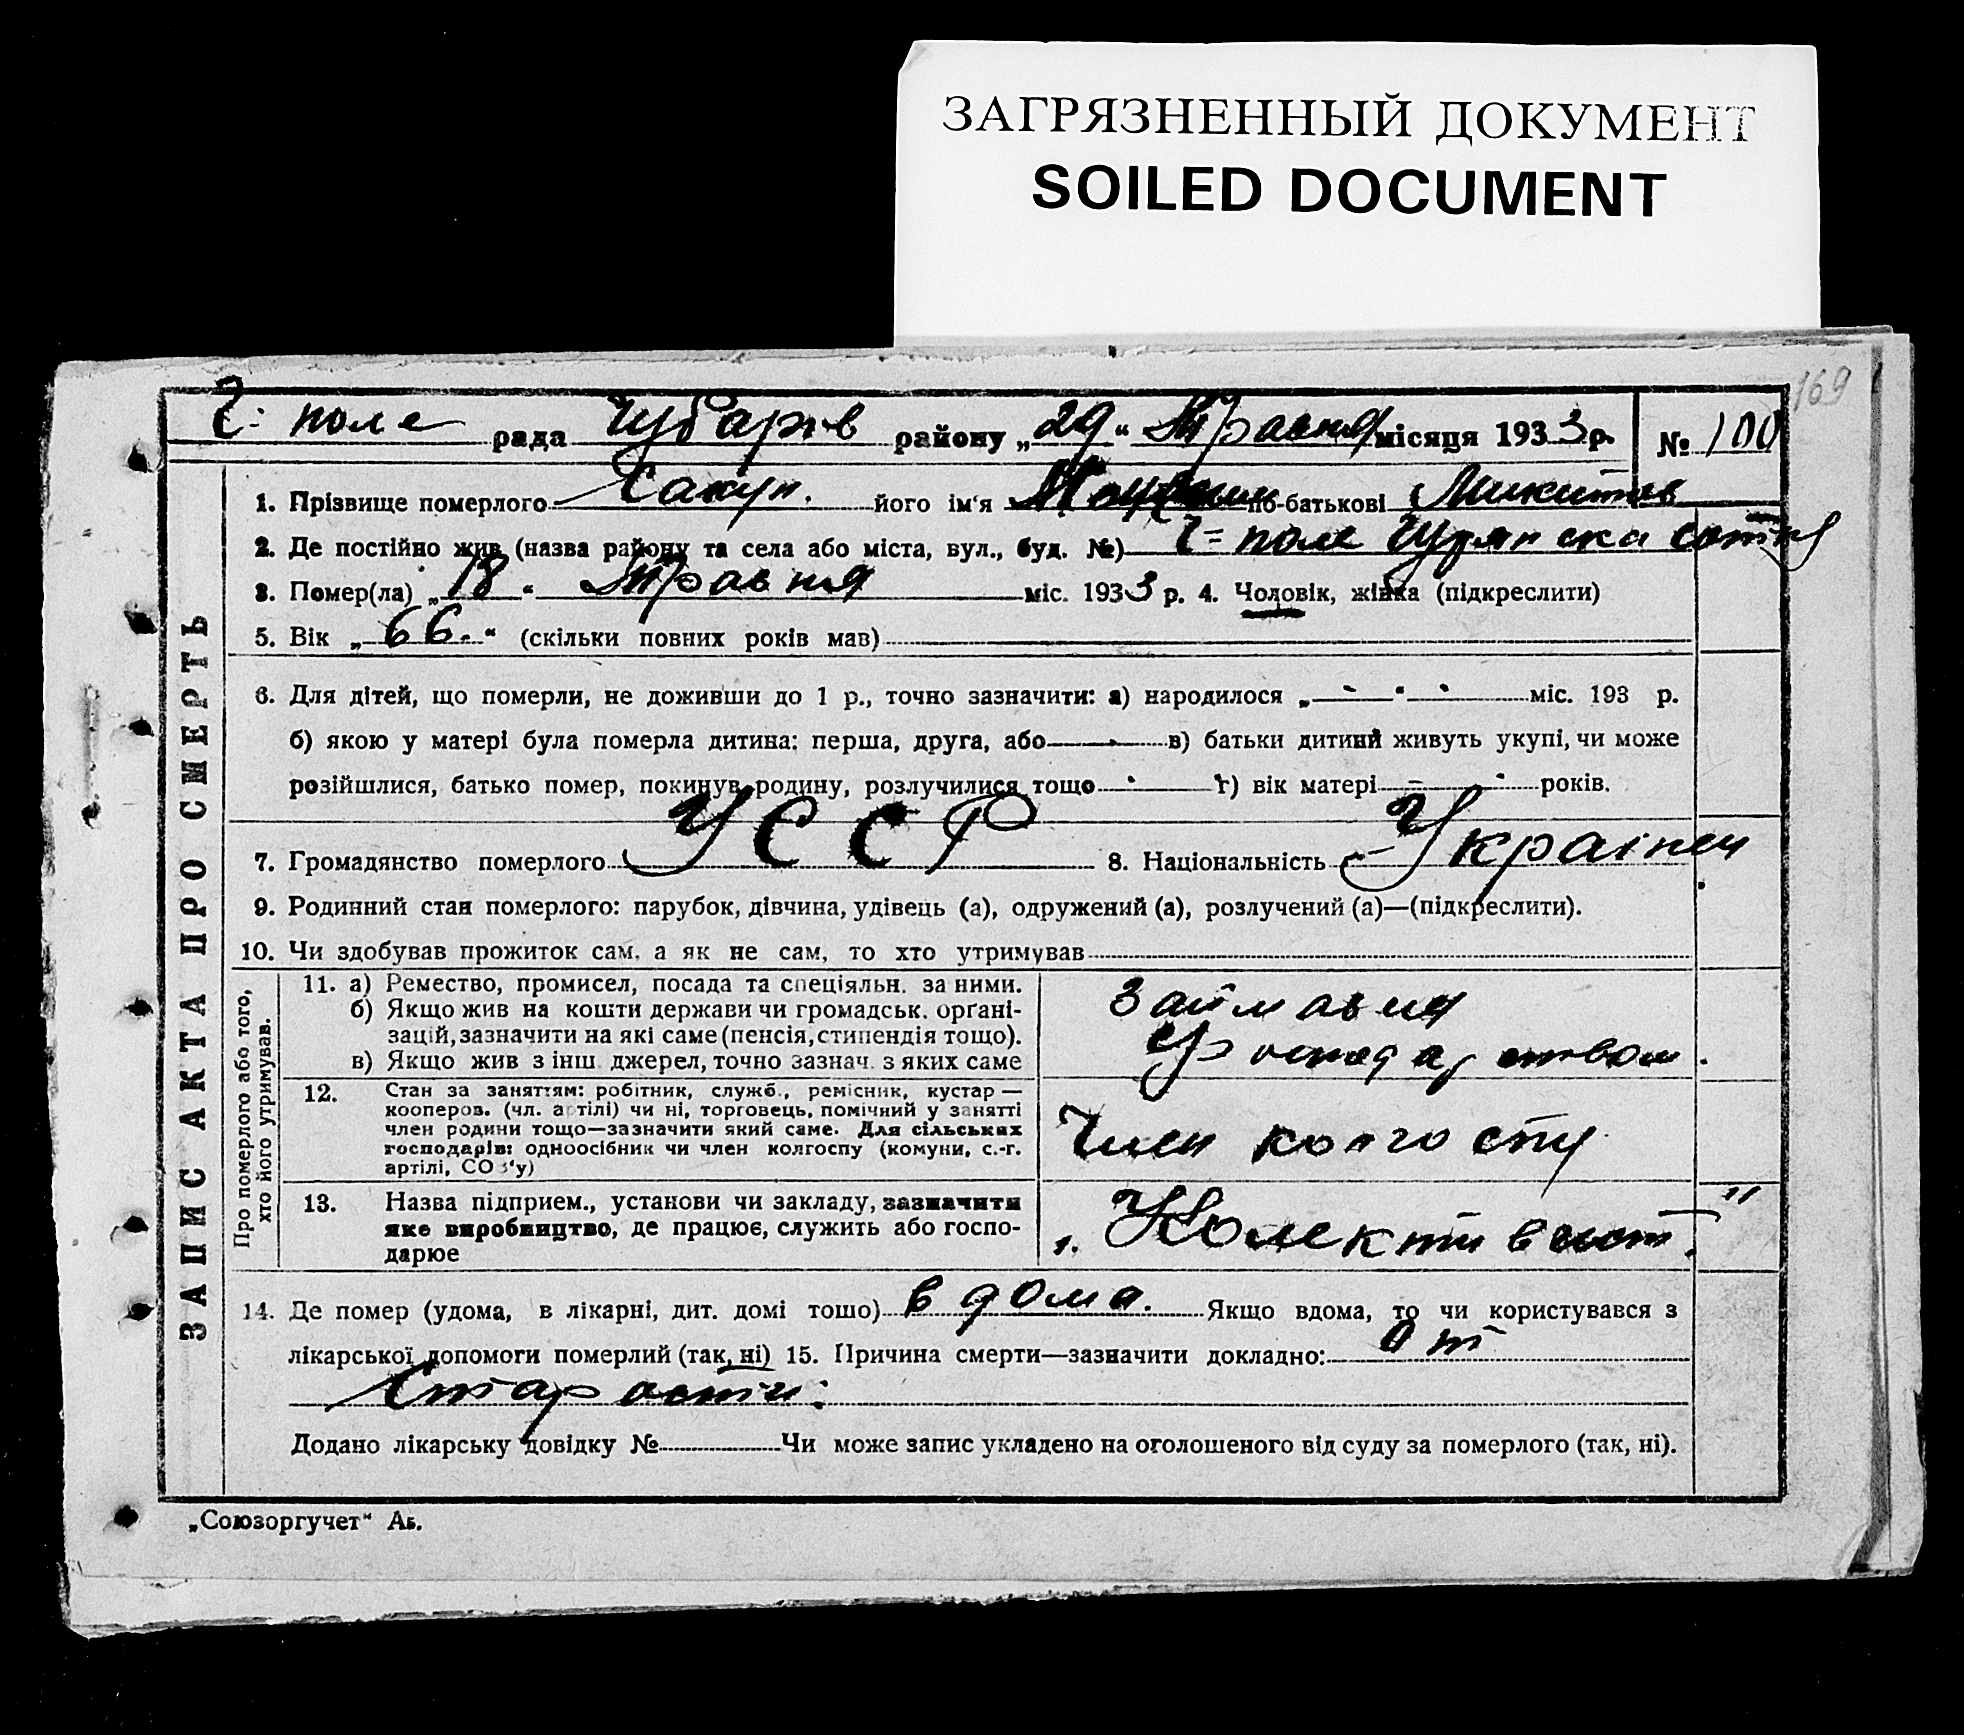 ЗАГРЯЗНЕННЫЙ ДОКУМЕНТ
SOILED DOCUMENT
169
Г: поле рада Чубарів району „29“ Травня місяця 1933 р. № 100
ЗАПИС АКТА ПРО СМЕРТЬ
1. Прізвище померлого Сакун. його ім'я по-батькові Микитов
2. Де постійно жив (назва району та села або міста, вул., буд. №) Г= поле сотня
3. Помер(ла) „18“ Травня міс. 1933 р. 4. Чоловік, жінка (підкреслити)
5. Вік „66.“ (скільки повних років мав)
6. Для дітей, що померли, не доживши до 1 р., точно зазначити: а) народилося „ “ міс. 193 р.
б) якою у матері була померла дитина: перша, друга, або в) батьки дитини живуть укупі, чи може
розійшлися, батько помер, покинув родину, розлучилися тощо г) вік матері років.
7. Громадянство померлого УССР 8. Національність Українец
9. Родинний стан померлого: парубок, дівчина, удівець (а), одружений (а), розлучений (а)—(підкреслити).
10. Чи здобував прожиток сам, а як не сам, то хто утримував
Про померлого або того,
хто його утримував.
11. а) Ремество, промисел, посада та спеціяльн. за ними.
б) Якщо жив на кошти держави чи громадськ. органі-
зацій, зазначити на які саме (пенсія, стипендія тощо).
в) Якщо жив з інш. джерел, точно зазнач. з яких саме
Займався
господарством.
12. Стан за заняттям: робітник, служб., ремісник, кустар —
кооперов. (чл. артілі) чи ні, торговець, помічний у занятті
член родини тощо—зазначити який саме. Для сільських
господарів: одноосібник чи член колгоспу (комуни, с.-г.
артілі, СОЗ'у)
Член колгоспу
13. Назва підприєм., установи чи закладу, зазначити
яке виробництво, де працює, служить або госпо-
дарює
„Колективист."
14. Де помер (удома, в лікарні, дит. домі тощо) в дома. Якщо вдома, то чи користувався з
лікарської допомоги померлий (так, ні) 15. Причина смерти—зазначити докладно: от
Старости:
Додано лікарську довідку № Чи може запис укладено на оголошеного від суду за померлого (так, ні).
„Союзоргучет“ Аб.